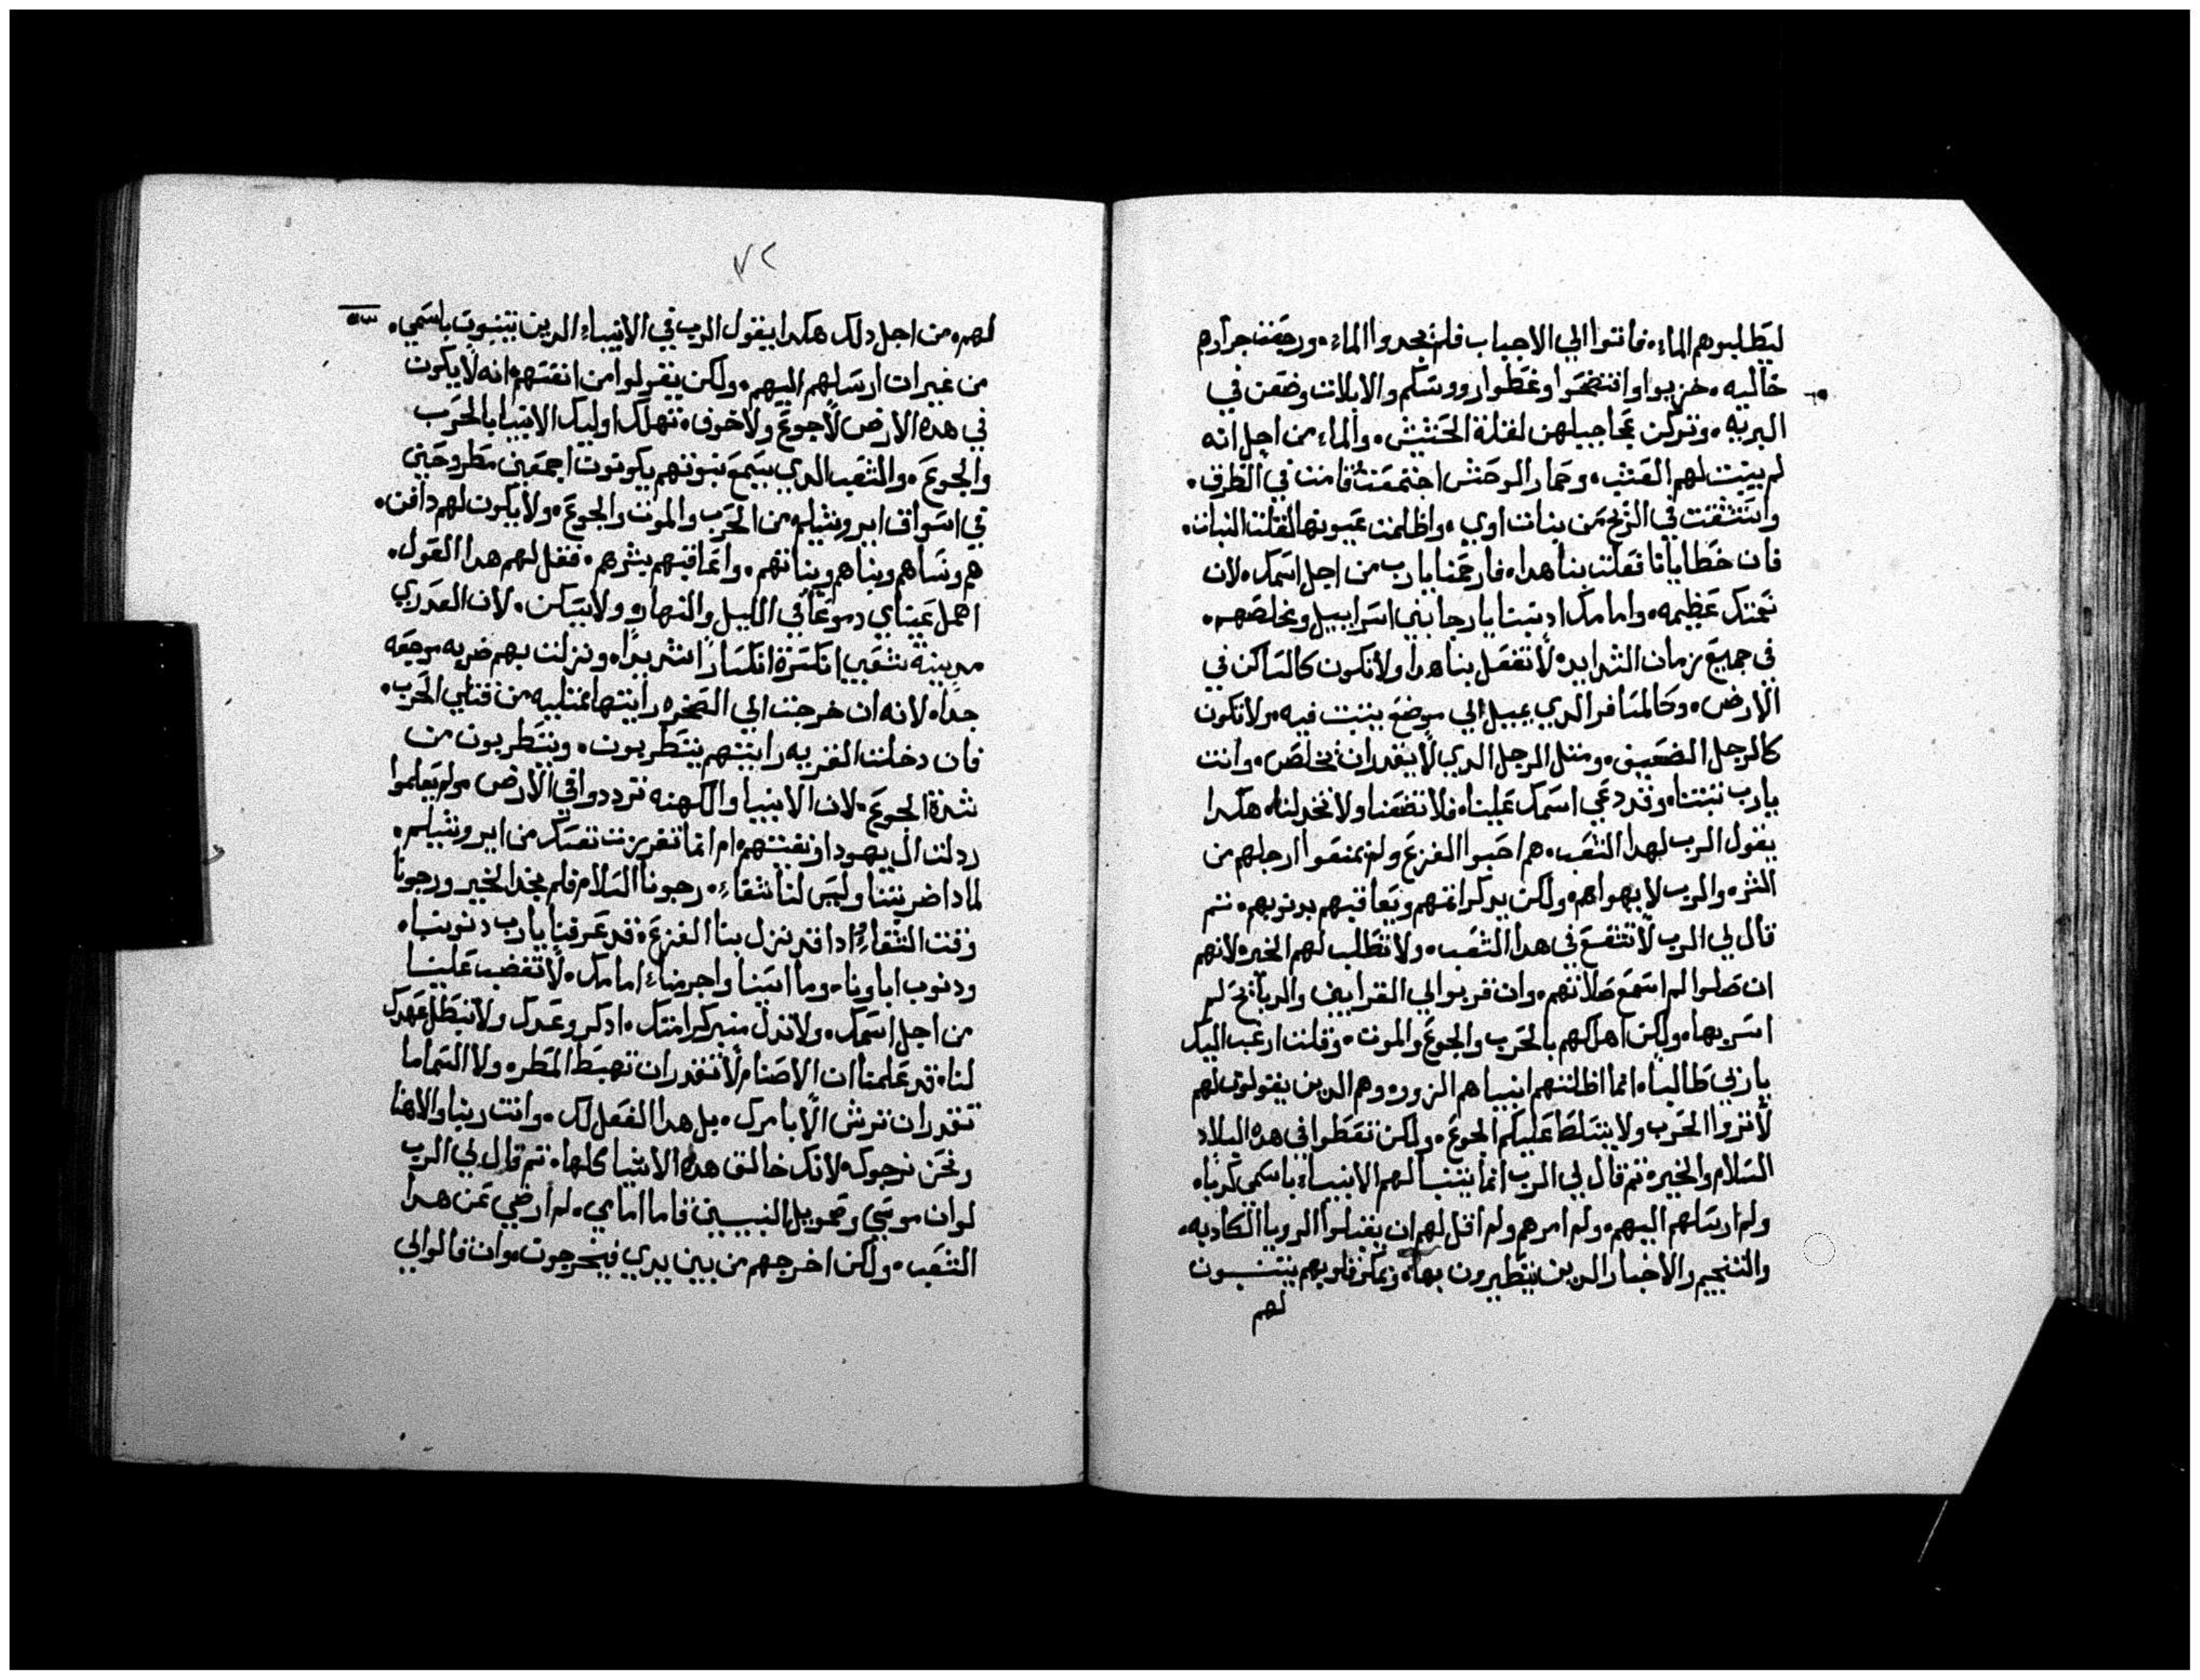 ليطلبوهم الماء، فاتوا الي الاجباب فلم يجدوا الماء، ورجعت جرارهم
خاليه، خزيوا وافتضحوا وغطوا رووسكم والايلات وضعن في
البريه، وتركن عجاجيلهن لقلة الحشيش، والماء من اجل انه
لم يبت لهم العشب، وحمار الوحش اجتمعت قامت في الطرق،
واستنشقت في الريح من بنات اوي، واظلمت عيونها لقلت النبات،
فان خطايانا فعلت بنا هدا، فارحمنا يا رب من اجل اسمك، لان
نعمتك عظيمه، وامامك ادنبنا يا رجا بني اسراييل ومخلصهم،
في جميع زمان الشدايد، لا تفعل بنا هدا ولا تكون كالساكن في
الارض، وكالمسافر الدي يميل الي موضع يبيت فيه، ولا تكون
كالرجل الضعيف، ومتل الرجل الدي لا يقدر ان يخلص، وانت
يا رب تبتنا، وقد دعي اسمك علينا، فلا تضعنا ولا تخدلنا، هكدا
يقول الرب لهدا الشعب، هم احبوا الفزع ولم يمنعوا ارجلهم من
الشر، والرب لا يهواهم، ولكن يدكر اتمهم ويعاقبهم بدنوبهم، تم
قال لي الرب لا تشفع في هدا الشعب، ولا تطلب لهم الخير، لانهم
ان صلوا لم اسمع صلاتهم، وان قربوا لي القرابين والدبايح لم
اسر بها، ولكن اهلكهم بالحرب والجوع والموت، وقلت ارغب اليك
يا ربي طالبا، انما اظلتهم انبياهم الزور، وهم الدين يقولون لهم
لا تروا الحرب ولا يتسلط عليكم الجوع، ولكن تعطوا في هده البلاد
السلام والخير، تم قال لي الرب انما يتنبا لهم الانبياء باسمي كدبا،
ولم ارسلهم اليهم، ولم امرهم ولم اقل لهم ان يقبلوا الرويا الكادبه،
والتنجيم والاخبار الدين يتطيرون بها، ومكر قلوبهم يتنبــون
لهم
٧٢
لهم، من اجل دلك هكدا يقول الرب في الانبياء الدين يتنبون باسمي،
من غير ان ارسلهم اليهم، ولكن يقولوا من انفسهم انه لا يكون
في هده الارض لا جوع ولا خوف، تهلك اوليك الانبيا بالحرب
والجوع، والشعب الدي يسمع نبوتهم يكونون اجمعين مطروحين
في اسواق ايروشليم من الحرب والموت والجوع، ولا يكون لهم دافن،
هم ونساهم وبناهم وبناتهم، واعاقبهم بشرهم، فقل لهم هدا القول،
اهمل عيناي دموعا في الليل والنهار، ولا تسكن، لان العدري
مدينة شعبي انكسرة انكسارا شديدا، ونزلت بهم ضربه موجعه
جدا، لانه ان خرجت الي الصخره رايتها ممتليه من قتلي الحرب،
فان دخلت القريه رايتهم يتطربون، ويتطربون من
شدة الجوع، لان الانبيا والكهنه ترددوا في الارض، ولم يعلموا
ردلت ال يهودا ونفيتهم، ام انما تقززت نفسك من ايروشليم،
لمادا ضربتنا وليس لنا شفاء، رجونا السلام فلم نجد الخير ورجونا
وقت الشفاء، وادا قد نزل بنا الفزع، قد عرفنا يا رب دنوبنا،
ودنوب اباونا، وما اسنا واجرمنا امامك، لا تغضب علينا
من اجل اسمك، ولا تدل منبر كرامتك، ادكر وعدك ولا تبطل عهدك
لنا، قد علمنا ان الاصنام لا تقدر ان تهبط المطر، ولا السما ما
تقدر ان ترش الا بامرك، بل هدا الفعل لك، وانت ربنا والاهنا
ونحن نرجوك، لانك خالق هده الاشيا كلها، تم قال لي الرب
لوان موسي وصمويل النبيين قاما امامي، لم ارضي عن هدا
الشعب، ولكن اخرجهم من بين يدي فيخرجون، وان قالوا لي